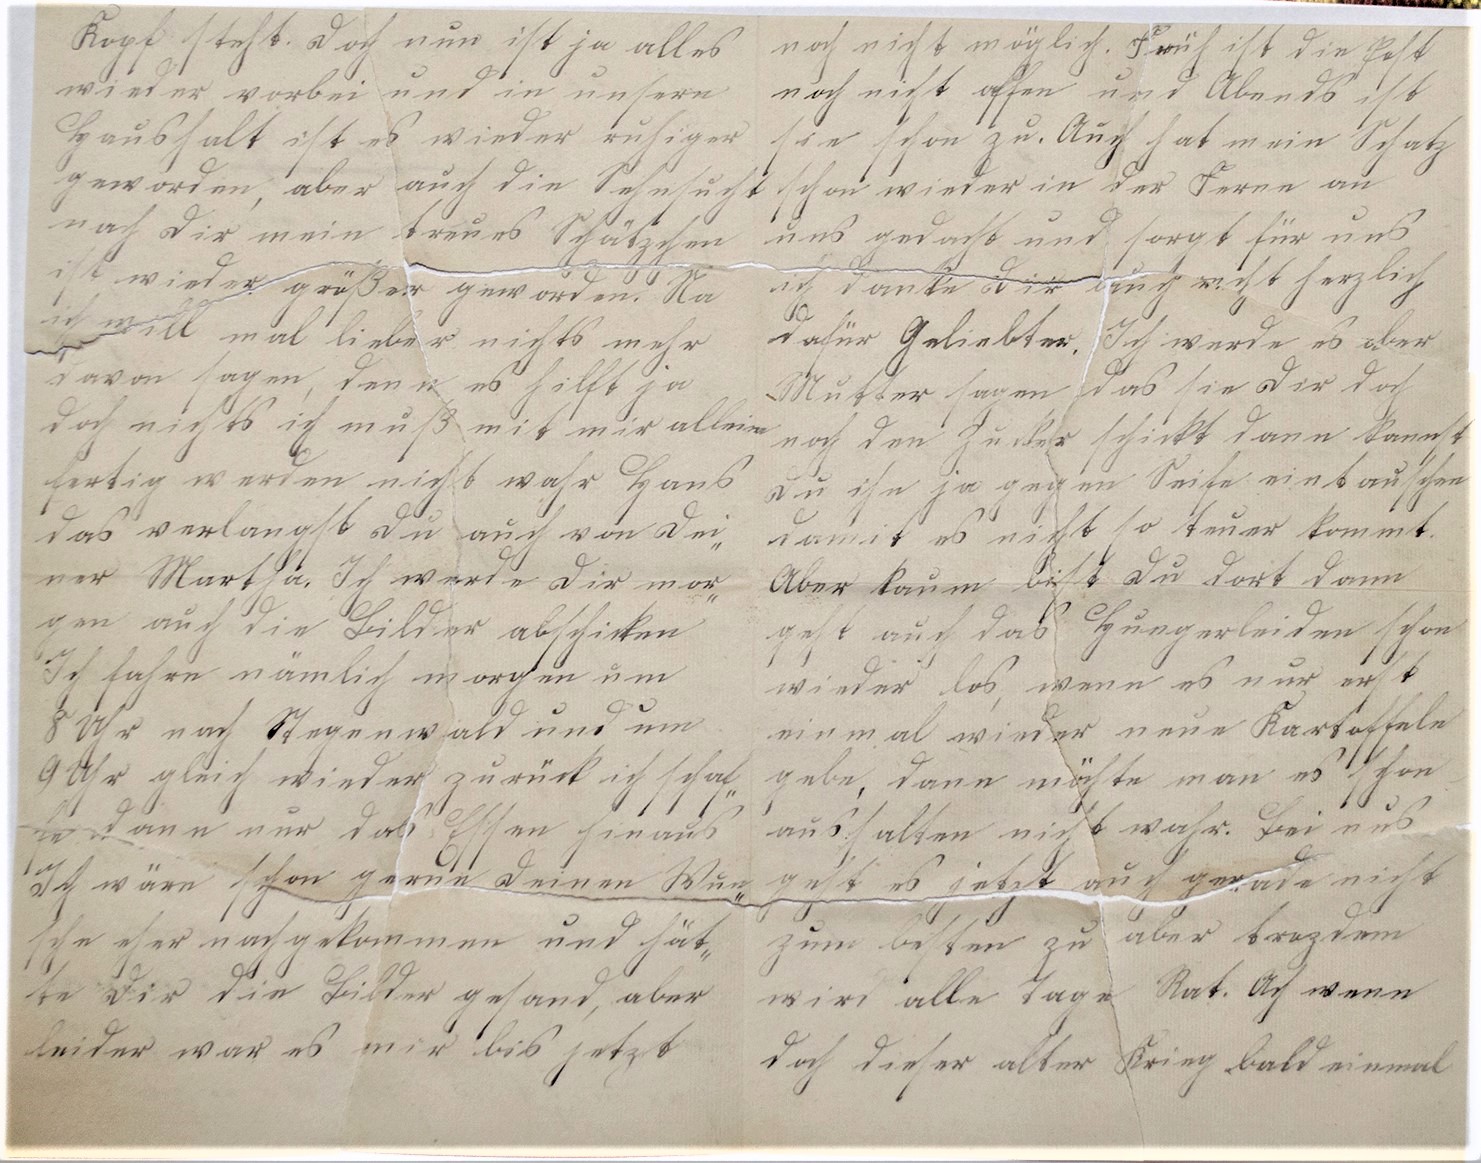 Kopf steht. Doch nun ist ja alles
wieder vorbei und in unsern
Haushalt ist es wieder ruhiger
geworden, aber auch die Sehnsucht
nach Dir mein treues Schätzchen
ist wieder größer geworden. Na
ich will mal lieber nichts mehr
davon sagen, denn es hilft ja
doch nichts ich muß mit mir allein
fertig werden nicht wahr Hans
das verlangst Du auch von Dei„
ner Martha. Ich werde Dir mor„
gen auch die Bilder abschicken
Ich fahre nämlich morgen um
8 Uhr nach Stegenwald und um
9 Uhr gleich wieder zurück ich schaf„
fe dann nur das Essen hinaus
Ich wäre schon gerne Deinen Wun„
sche eher nachgekommen und hät„
te Dir die Bilder gesand, aber
leider war es mir bis jetzt
noch nicht möglich. Früh ist die Post
noch nicht offen und Abends ist
sie schon zu. Auch hat mein Schatz
schon wieder in der Ferne an
uns gedacht und sorgt für uns
ich danke Dir auch recht herzlich
dafür Geliebter. Ich werde es aber
Mutter sagen das sie Dir doch
noch den Zucker schickt dann kannst
Du ihn ja gegen Seife eintauschen
damit es nicht so teuer kommt.
Aber kaum bist Du dort dann
geht auch das Hungerleiden schon
wieder los, wenn es nur erst
einmal wieder neue Kartoffeln
gebe, dann möchte man es schon
aushalten nicht wahr. Bei uns
geht es jetzt auch gerade nicht
zum besten zu aber trozdem
wird alle Tage Rat. Ach wenn
doch dieser alter Krieg bald einmal